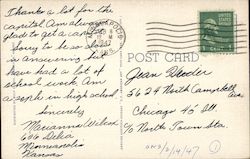 Thanks a lot for the
capital. Am always
glad to get a card.
Sorry to be so slow
in answering but
have had a lot of
school work. Am
a soph in high school
Sincerely
Marianna
Minneapolis
Kansas
POST CARD
Jean
5624 North Campbell
Ave
Chicago 45 Ill.
% North Town Sta.